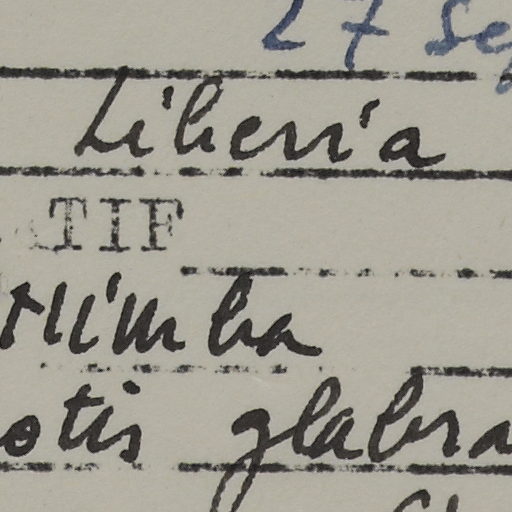 27 Se
Liberia
TIF
Nimba
otis glabra